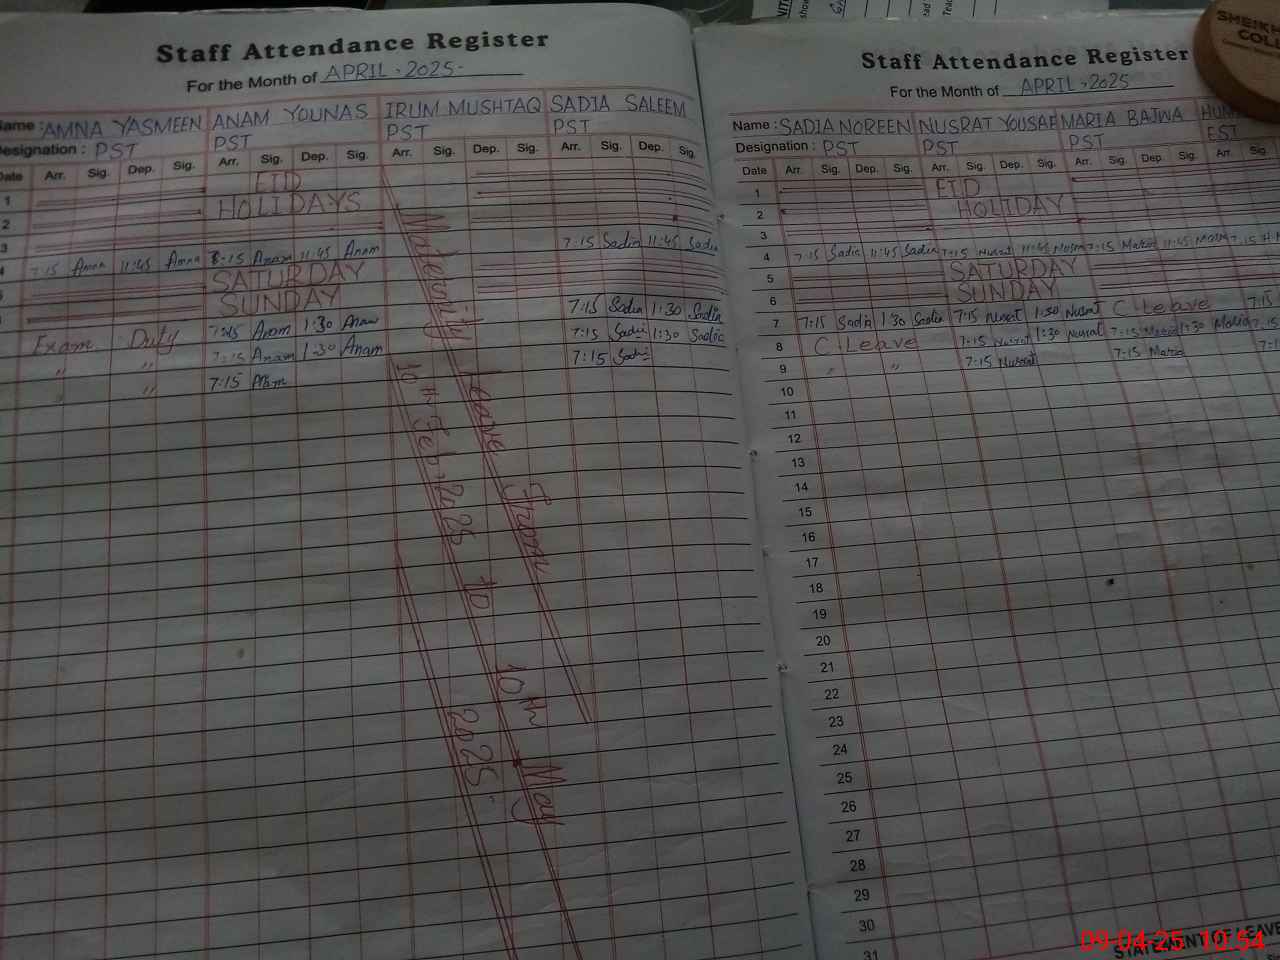 Staff Attendance Register
For the Month of APRIL-2025-
Name: AMNA YASMEEN ANAM YOUNAS IRUM MUSHTAQ SADIA SALEEM
Designation: PST PST PST PST
Date Arr. Sig. Dep. Sig. Arr. Sig. Dep. Sig. Arr. Sig. Dep. Sig. Arr. Sig. Dep. Sig.
1 EID
2 HOLIDAYS
3
4 7:15 Amna 11:45 Amna 8:15 Anam 11:45 Anam 7:15 Sadia 11:45 Sadia
SATURDAY
SUNDAY
Exam Duty 7:15 Anam 1:30 Anam 7:15 Sadia 1:30 Sadia
" " 7:15 Anam 1:30 Anam 7:15 Sadia 1:30 Sadia
" " 7:15 Anam 7:15 Sadia
Maternity Leave From
10th Feb-2025 to 10th May
2025-
Staff Attendance Register
For the Month of APRIL-2025
Name: SADIA NOREEN NUSRAT YOUSAF MARIA BAJWA HUM
Designation: PST PST PST EST
Date Arr. Sig. Dep. Sig. Arr. Sig. Dep. Sig. Arr. Sig. Dep. Sig. Arr. Sig.
1 EID
2 HOLIDAY
3
4 7:15 Sadia 11:45 Sadia 7:15 Nusrat 11:45 Nusrat 7:15 Maria 11:45 Maria 7:15
5 SATURDAY
6 SUNDAY
7 7:15 Sadia 1:30 Sadia 7:15 Nusrat 1:30 Nusrat C Leave 7:15
8 C Leave 7:15 Nusrat 1:30 Nusrat 7:15 Maria 1:30 Maria 7:15
9 " " 7:15 Nusrat 7:15 Maria
10
11
12
13
14
15
16
17
18
19
20
21
22
23
24
25
26
27
28
29
30
31
STATEMENT OF LEAVE
SHEIKH
COL
09-04-25 10:54